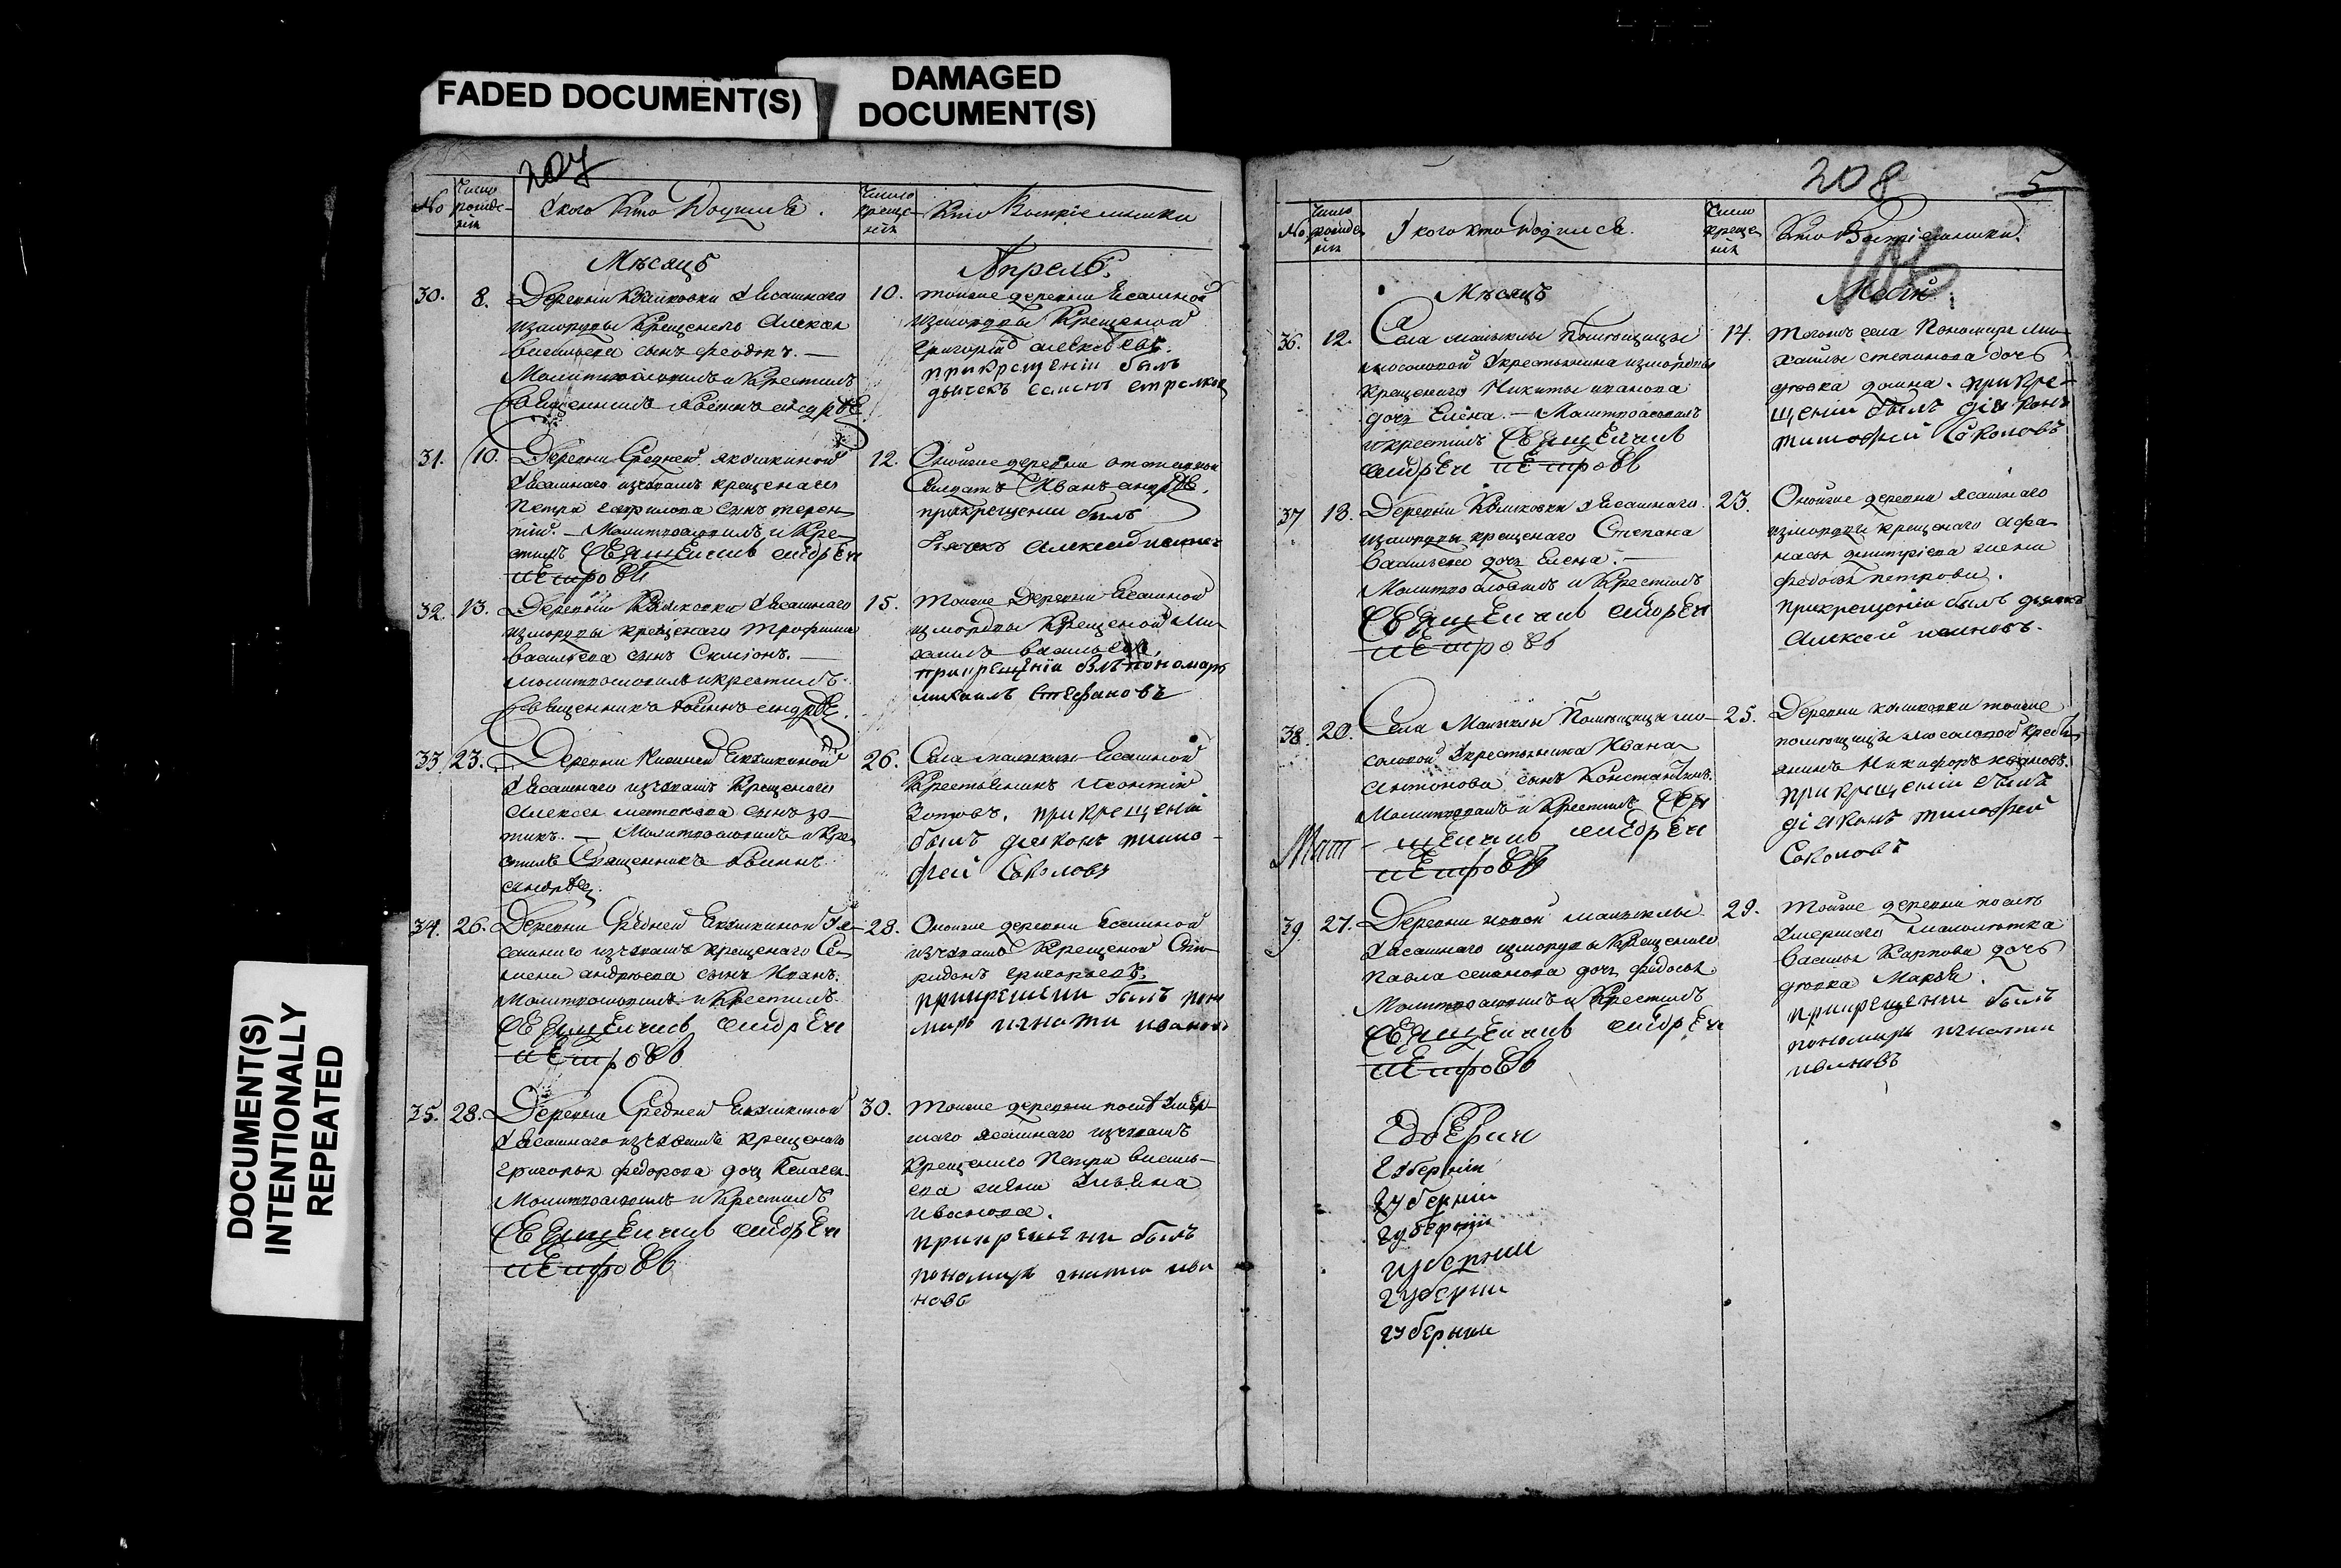 FADED DOCUMENT(S)
DAMAGED
DOCUMENT(S)
DOCUMENT(S)
INTENTIONALLY
REPEATED
207
No
Число
рожде-
нія
У кого кто родился.
Число
креще-
нія
Кто воспріемники
Мѣсяцъ
Апрель.
30. 8. Деревни Камковки у Ясашнаго
измордвы крещенаго Алексея
васильева сынъ феодотъ. —
Молитвословилъ и крестилъ
Священникъ андрѣе
10. тойже деревни Ясашной
измордвы крещеной
григорій алексѣевъ.
прикрещеніи былъ
дьячекъ
31. 10. Деревни Средней якушкиной
у Ясашнаго изчювашъ крещенаго
Петра гаврилова сынъ терен
тій. — Молитвословилъ и кре
стилъ Священникъ андрей
петровъ
12. Оной же деревни отставной
Салдатъ Иванъ андрѣе.
прикрещении былъ
дьячекъ Алексей
32. 13. Деревни Камковки у Ясашнаго
измордвы крещенаго трофима
васильева сынъ Симіонъ. —
молитвословилъ икрестилъ
Священникъ андрѣе.
15. тойже деревни Ясашной
измордвы крещеной ми
хаилъ васильевъ,
прикрещеніи былъ пономарь
михаилъ Стефановъ
33. 23. Деревни Нижней Якушкиной
у Ясашнаго изчювашъ крещенаго
Алексея сынъ зо-
тикъ. — Молитвословилъ и кре
стилъ Священникъ
андрѣе.
26. Села Ясашной
Крестьянинъ Леонтій
Зотовъ. прикрещеніи
былъ дьяконъ тимо-
фей Соколовъ
34. 26. Деревни Средней Якушкиной у Я-
сашнаго изчювашъ крещенаго Се
мена андрѣева сынъ Иванъ.
Молитвословилъ и крестилъ
Священникъ андрей
петровъ
28. Оной же деревни Ясашной
изчювашъ крещеной Спи
ридонъ григорьевъ.
прикрещени былъ поно
марь игнати иванов
35. 28. Деревни Средней Якушкиной
у Ясашнаго изчювашъ крещенаго
григорья федорова дочь Пелагея.
Молитвословилъ и крестилъ
Священникъ андрей
петровъ
30. тойже деревни послѣ умер-
шаго ясашнаго изчювашъ
крещенаго Петра василь-
ева жена Ульяна
иванова.
прикрещени былъ
пономарь игнати ива
новъ
208
5
No
Число
рожде
нія
У кого кто родился.
Число
креще
нія
Кто Воспріемники.
Мѣсяцъ
Маий.
36. 12. Села Помѣщицы
у крестьянина измордвы
крещенаго Никиты иванова
дочь Елена. — Молитвословилъ
икрестилъ Священникъ
андрей петровъ
14. тогожъ села Пономаря ми-
хаилы степанова дочь
дѣвка домна. прикре-
щении былъ діяконъ
тимофей Соколовъ
37. 18. Деревни Камковки у Ясашнаго
измордвы крещенаго Степана
васильева дочь Елена. —
Молитвословилъ и крестилъ
Священникъ андрей
петровъ
23. Оной же деревни Ясашнаго
измордвы крещенаго афа-
насья димитріева жена
федосья петрова.
прикрещеніи былъ дьячекъ
Алексей ивановъ.
38. 20. Села Помѣщицы мо-
соловой у крестьянина Ивана
Антонова сынъ Константинъ.
Молитвословилъ и крестилъ Свя
щенникъ андрей
петровъ
25. Деревни камковки тойже
помѣщицы мосоловой кресть
янинъ Никифоръ ивановъ.
прикрещеніи былъ
діяконъ тимофей
Соколовъ
39. 27. Деревни новой
у Ясашнаго измордвы крещенаго
Павла семенова дочь федосья.
Молитвословилъ и крестилъ
Священникъ андрей
петровъ
29. тойже деревни послѣ
умершаго
василья Карпова дочь
дѣвка Марѳа.
прикрещени былъ
пономарь игнати
ивановъ
губерни
губерніи
губерніи
губерніи
губернии
губерни
губернии